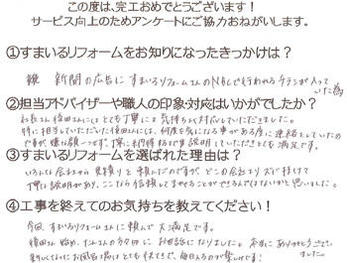 この度は、完工おめでとうございます！
サービス向上のためアンケートにご協力おねがいします。
①すまいるリフォームをお知りになったきっかけは？
新聞の広告にすまいるリフォームさんのNBCで行われるチラシが入っていた為
②担当アドバイザーや職人の印象・対応はいかがでしたか？
社長さん 様とても丁寧に気持ちよく対応していただきました。
特に担当していただいた さんには、何度も気になる事がある度に連絡をしていたの
ですが、嫌な顔一つせず、丁寧に納得するまで説明していただきとても満足です。
③すまいるリフォームを選ばれた理由は？
いろんな会社から見積りを頼んだのですが、どこの会社よりズバ抜けて
丁寧な説明があり、ここなら信頼してまかせることができるんではないかと思いました。
④工事を終えてのお気持ちを教えてください！
今回すまいるリフォームさんに頼んで大満足です。
さん始め、たくさんの方々にお世話になりました。本当にありがとうございました。
新しくなったお風呂場はとても快適で、毎日入るのが楽しみです！